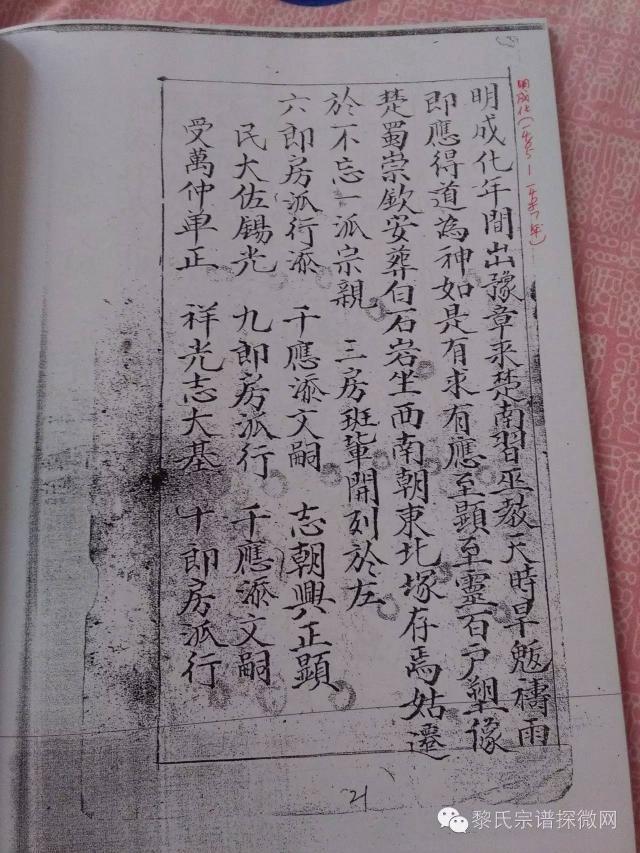 明成化(1465—1487年)
明成化年間出豫章来楚南習巫教天時旱魃禱雨
即應得道為神如是有求有應至顯至靈百户塑像
楚蜀崇欽安葬白石岩坐西南朝東北塚存焉姑遷
於不忘一派宗親 三房班輩開列於左
六郎房派行添 千應添文嗣 志朝興正顯
民大佐錫光 九郎房派行 千應添文嗣
受萬仲单正 祥光志大基 十郎房派行
21
黎氏宗谱探微网